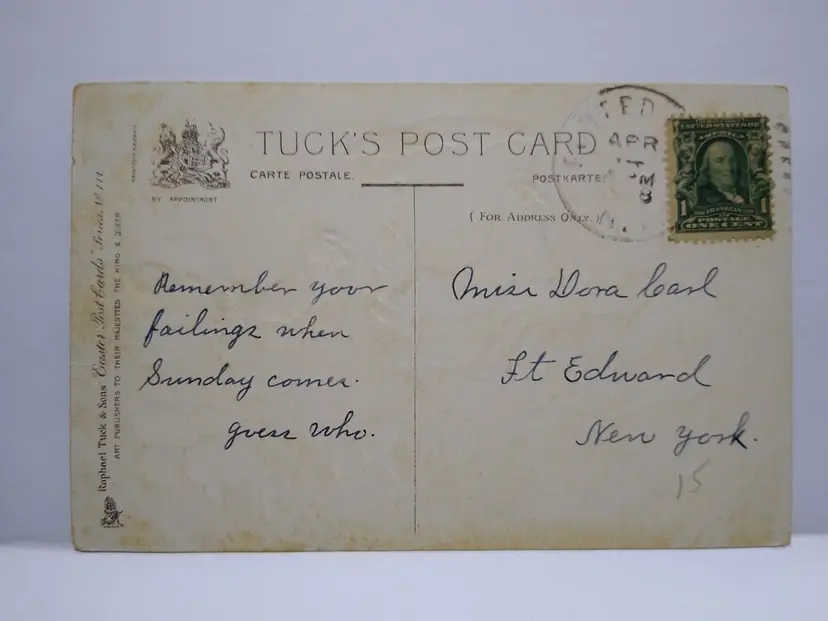 TUCK'S POST CARD
CARTE POSTALE.
POSTKARTE.
BY APPOINTMENT
( FOR ADDRESS ONLY. )
Raphael Tuck & Sons' "Easter Post Cards" Series Nº 111
ART PUBLISHERS TO THEIR MAJESTIES THE KING & QUEEN
APR
UNITED STATES OF
AMERICA
1
FRANKLIN
POSTAGE
ONE CENT
Remember your
failings when
Sunday comes.
guess who.
Miss Dora Carl
Ft Edward
New York.
15